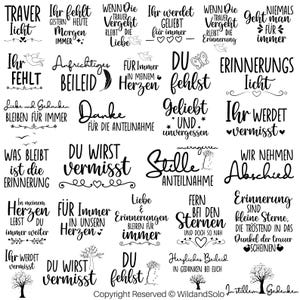 TRAUER
licht
Ihr fehlt
GESTERN HEUTE
Morgen
IMMER
WENN DIE
TRAUER
Vergeht
BLEIBT DIE
Liebe
Ihr werdet
GELIEBT
für immer
WENN DIE
TRAUER
Vergeht
BLEIBT DIE
Erinnerung
NIEMALS
Geht man
FÜR
immer
Ihr
FEHLT
Aufrichtiges
BEILEID
FÜR Immer
IN MEINEM
Herzen
DU
fehlst
ERINNERUNGS
licht
Liebe und Gedanken
BLEIBEN FÜR IMMER
Danke
FÜR DIE ANTEILNAHME
Geliebt
UND
unvergessen
Ihr WERDET
vermisst
WAS BLEIBT
ist die
ERINNERUNG
DU WIRST
vermisst
Stille
ANTEILNAHME
WIR NEHMEN
Abschied
In meinem
Herzen
LEBST DU
immer weiter
FÜR Immer
IN UNSEREN
Herzen
Liebe
&
Erinnerungen
BLEIBEN FÜR
immer
FERN
BEI DEN
Sternen
UND DOCH SO NAH
Erinnerung
SIND
kleine Sterne,
DIE TRÖSTEND IN DAS
Dunkel der trauer
SCHEINEN
Ihr WERDET
vermisst
DU WIRST
vermisst
DU
fehlst
Herzliches Beileid
IN GEDANKEN BEI EUCH
In stillem Gedenken
Copyright Reserved © WildandSolo